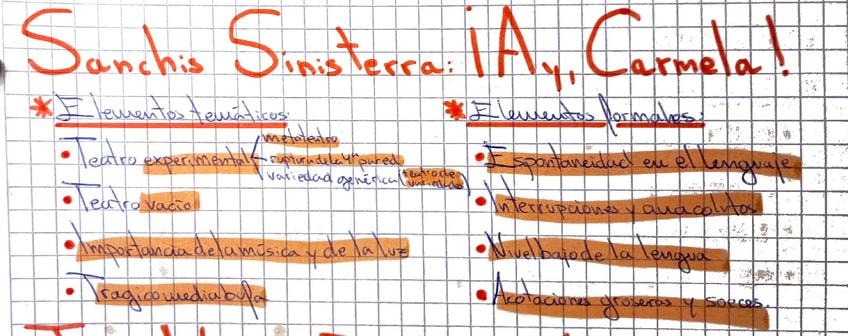 Sanchis Sinisterra: ¡Ay, Carmela!
* Elementos temáticos:
• Teatro experimental
metateatro
ruptura de la 4ª pared
variedad genérica (teatro de variedades)
• Teatro vacío
• Importancia de la música y de la luz
• Tragicomedia bufa
* Elementos formales:
• Espontaneidad en el lenguaje
• Interrupciones y anacolutos
• Nivel bajo de la lengua
• Acotaciones groseras y soeces.